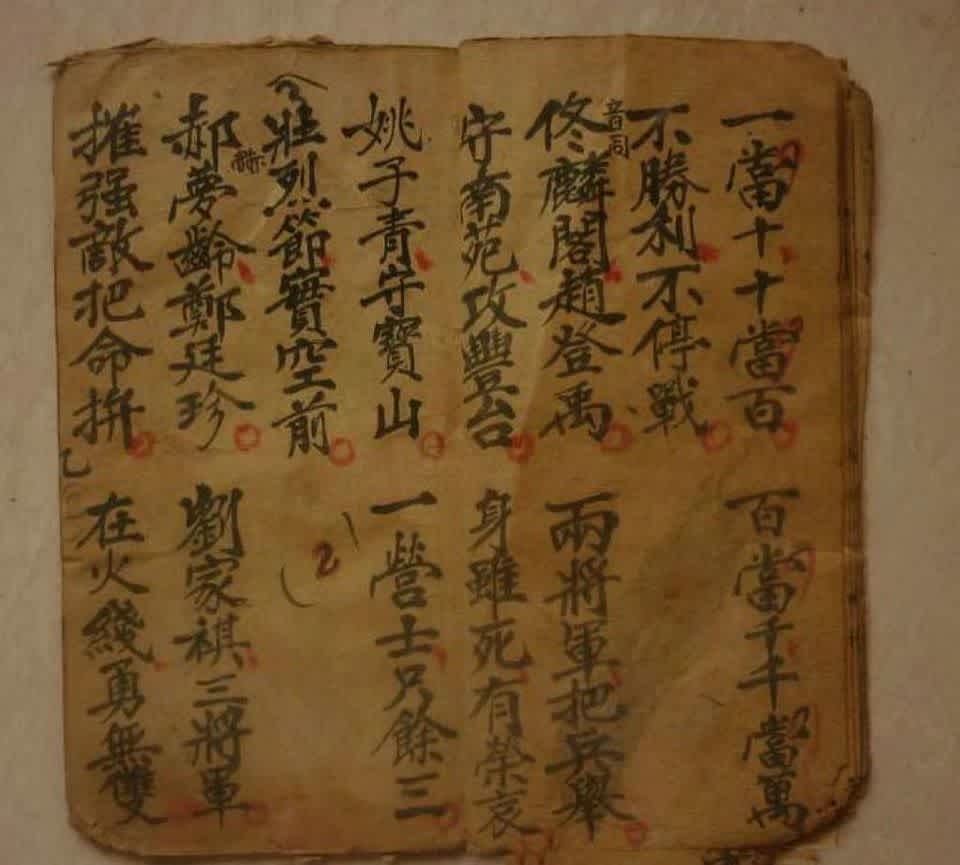 一當十十當百
百當千千當萬
不勝利不停戰
音同
佟麟閣趙登禹
兩將軍把兵舉
守南苑攻豐台
身雖死有榮哀
姚子青守寶山
一營士只餘三
壯烈節實空前
2
郝夢齡鄭廷珍
劉家祺三將軍
摧强敵把命拚
在火綫勇無雙